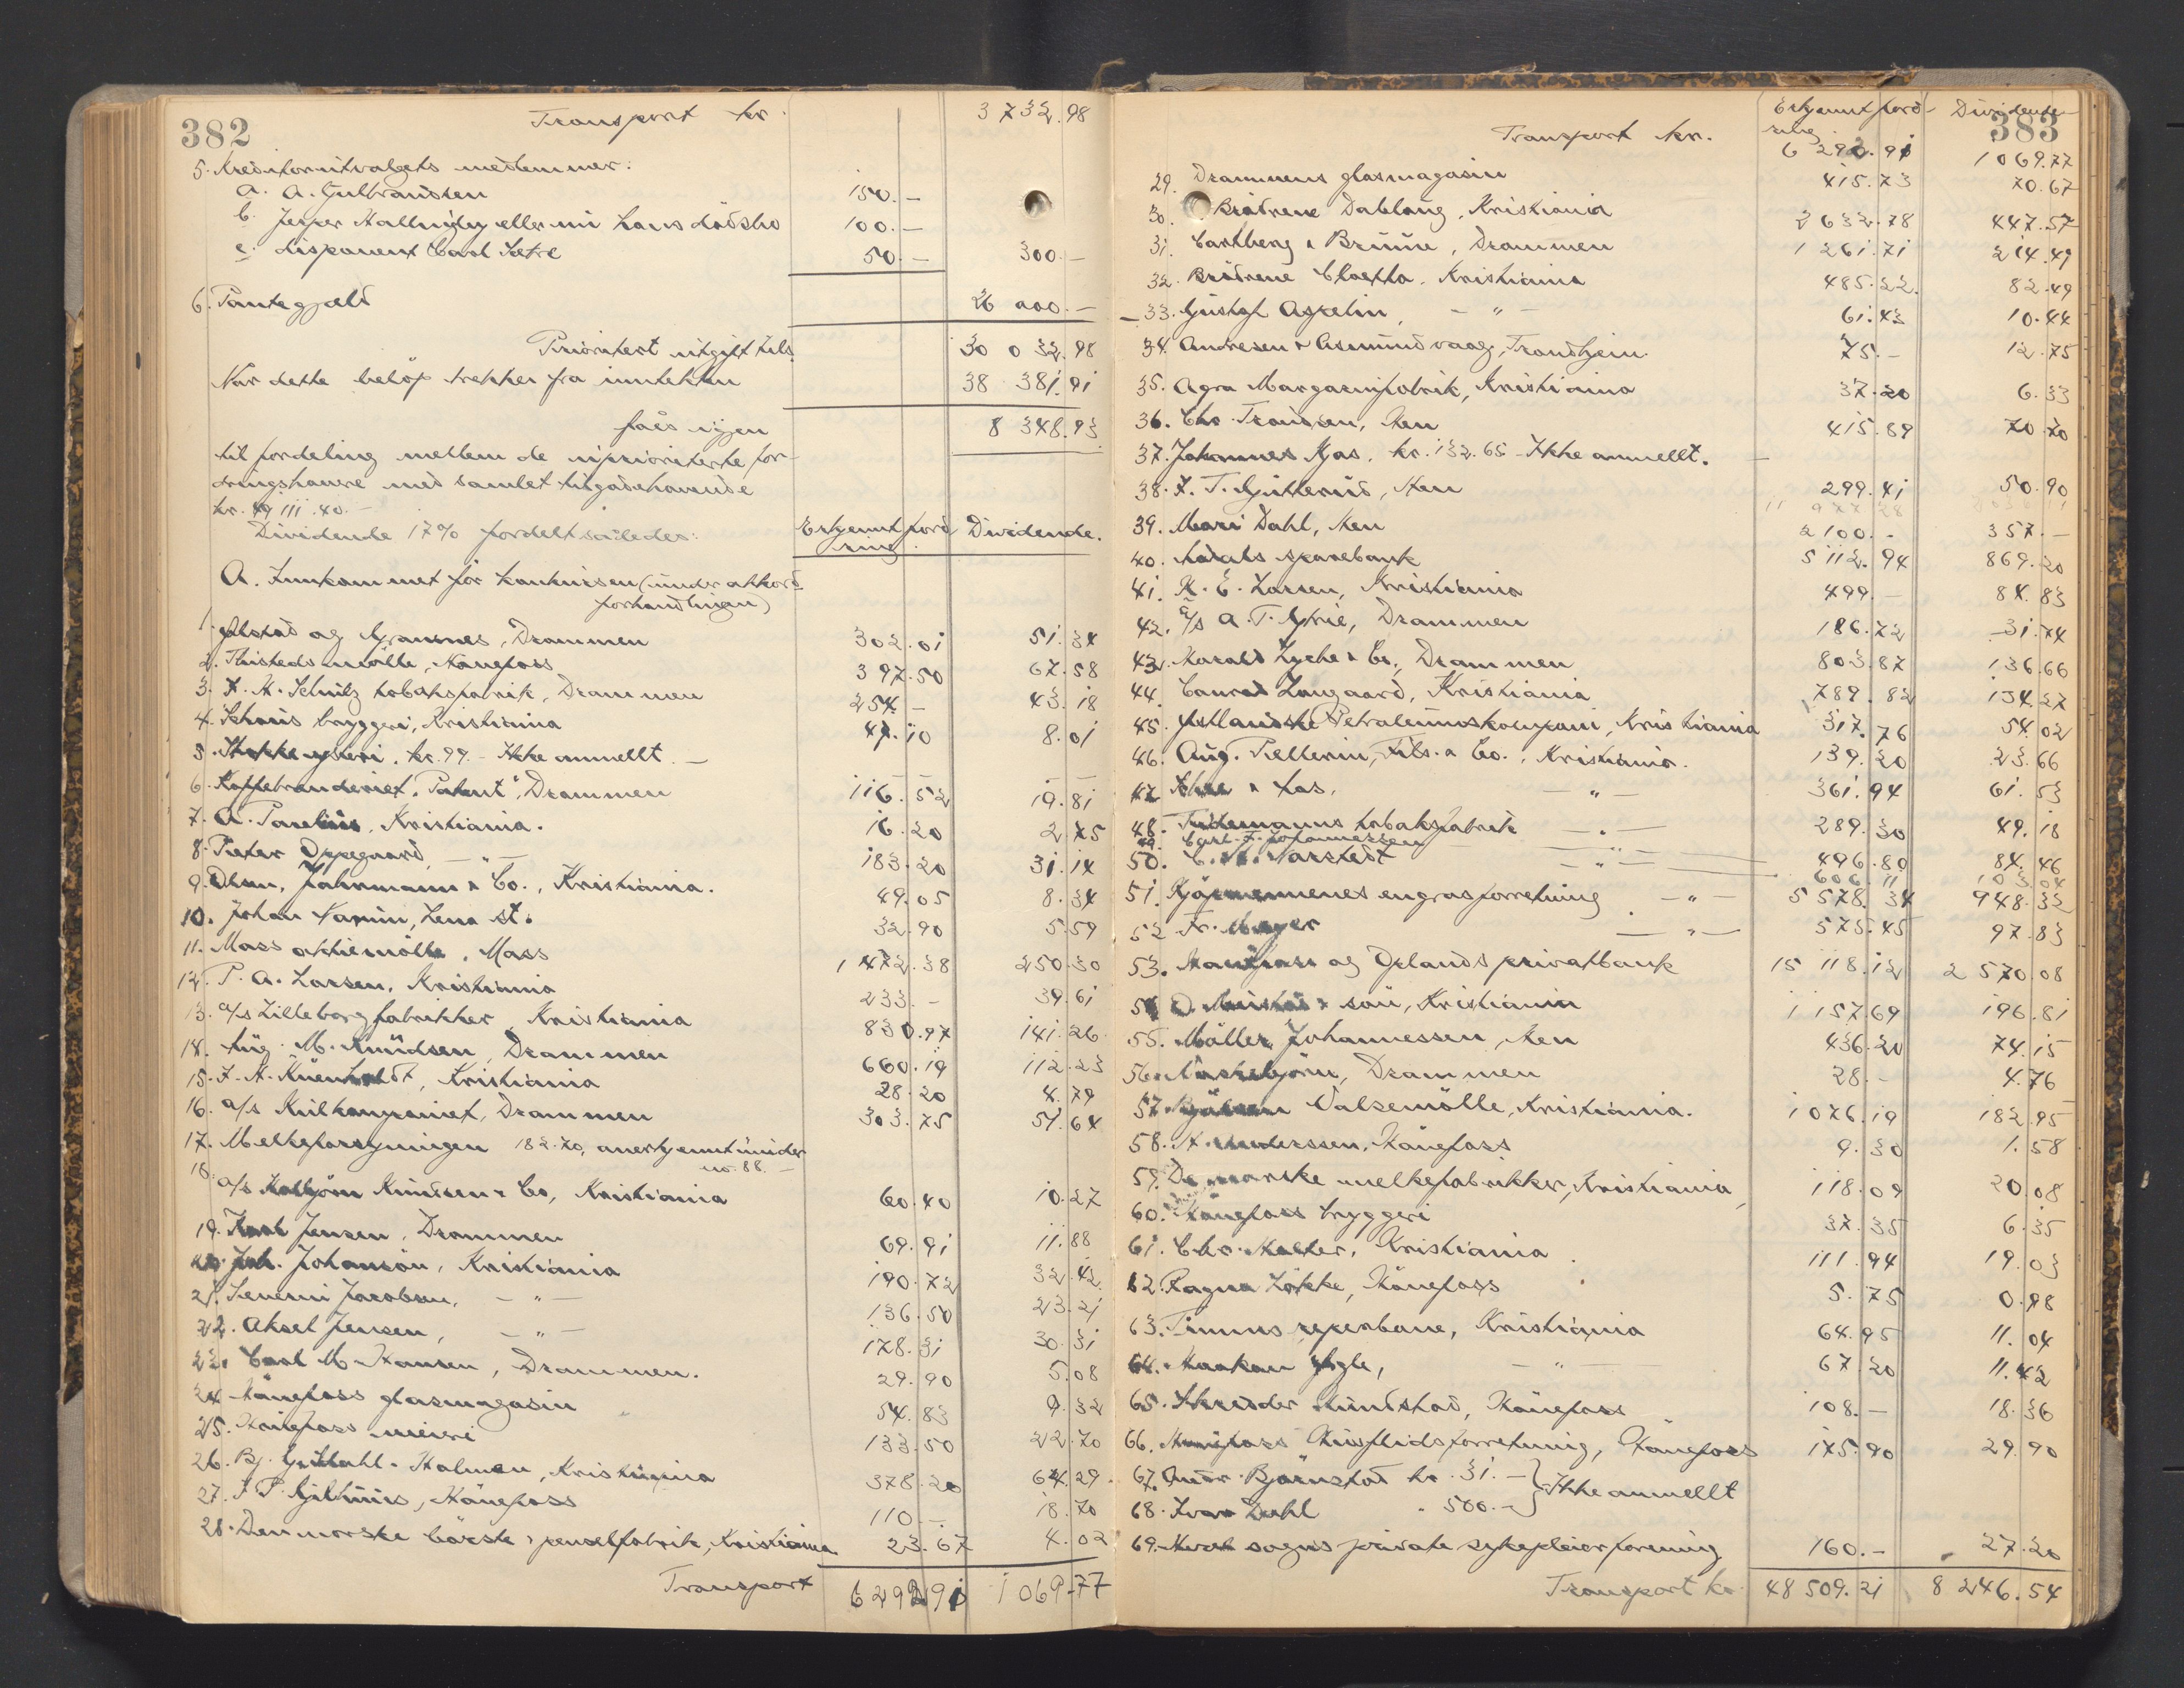 382
Transport kr. 3 732.98
5. Kreditorutvalgets medlemmer:
a. A. Gulbrandsen 150.-
b. Jesper Hallingby eller nu hans dödsbo 100.-
c. disponent Carl Sætre 50.- 300.-
6. Pantegjæld 26 000.-
Prioritert utgift tils. 30 032.98
Når dette belöp trekkes fra inntekten 38 381.91
fåes igjen 8 348.93
til fordeling mellem de uprioriterte for-
dringshavere med samlet tilgodehavende
kr. 49 111.40.-
Dividende 17% fordelt således: Erkjennt ford- Dividende.
ring.
A. Innkommet för konkursen (under akkord-
forhandlingen)
1. og Grannes, Drammen 302.01 51.34
2. Thisteds mölle, Hönefoss 397.50 67.58
3. H. Schultz tobaksfabrik, Drammen 254.- 43.18
4. Schous bryggeri, Kristiania 47.10 8.01
5. ysteri, kr. 99.- Ikke anmellt. -
6. Kaffebrenderiet "Patent", Drammen 116.52 19.81
7. A. Paulius, Kristiania. 16.20 2.75
8. Peter Oppegaard -"- 183.20 31.14
9. Olsen, Jahrmann & Co., Kristiania. 49.05 8.34
10. Johan Narum, Lena st. 32.90 5.59
11. Moss aktiemölle, Moss 1 472.38 250.30
12. P. A. Larsen, Kristiania 233.- 39.61
13. a/s Lilleborg fabrikker, Kristiania 830.97 141.26
14. Aug. M. Knudsen, Drammen 660.19 112.23
15. Kristiania 28.20 4.79
16. a/s Kulkompaniet, Drammen 303.75 51.64
17. Melkeforsyningen 182.70, anerkjennt under
no. 88. -
18. a/s Knudsen & Co, Kristiania 60.40 10.27
19. Jensen, Drammen 69.91 11.88
20. Joh. Johanson, Kristiania 190.72 32.42
21. Jacobsen, -"- 136.50 23.21
22. Aksel Jensen, -"- 178.31 30.31
23. Carl M. Hansen, Drammen. 29.90 5.08
24. Hönefoss glasmagasin 54.83 9.32
25. Hönefoss meieri 133.50 22.70
26. Bj. Holmen, Kristiania 378.20 64.29
27. Hönefoss 110.- 18.70
28. Den norske börste & penselfabrik, Kristiania 23.67 4.02
Transport 6 292.91 1 069.77
383
Erkjennt ford- Dividende
ring
Transport kr. 6 292.91 1 069.77
29. Drammens glasmagasin 415.73 70.67
30. Brödrene Dobloug, Kristiania 2 632.78 447.57
31. Carlberg & Bruun, Drammen 1 261.71 214.49
32. Brödrene Cloetta, Kristiania 485.22. 82.49
33. Gustaf Aspelin, -"- 61.43 10.44
34. Andresen & Asmundvaag, Trondhjem. 75.- 12.75
35. Agra Margarinfabrik, Kristiania 37.20 6.33
36. Chr. Trondsen, Hen 415.89 70.70
37. Johannes Moe, kr. 132.65 - Ikke anmellt. -
38. Hen 299.41 50.90
39. Mari Dahl, Hen 2 100.- 357.-
40. sparebank 5 112.94 869.20
41. K. E. Larsen, Kristiania 499.- 84.83
42. a/s A. T. Drammen 186.72 31.74
43. Harald Lyche & Co., Drammen 803.87 136.66
44. Conrad Langaard, Kristiania 789.82 134.27
45. Östlandske Petroleumskompani, Kristiania 317.76 54.02
46. Aug. Pellerin, Fils. & Co., Kristiania. 139.20 23.66
47. & -"- 361.94 61.53
48. Tiedemanns tobaksfabrik -"- 289.30 49.18
49. Carl. F. Johannessen 606.11 103.04
50. Narstedt -"- 496.80 84.46
51. Kjöpmennenes engrosforretning -"- 5 578.34 948.32
52. Fr. Meyer -"- 575.45 97.83
53. og Oplands privatbank 15 118.12 2 570.08
54. O. Mustad & sön, Kristiania 1 157.69 196.81
55. Möller, Johannessen, Hen 436.20 74.15
56. Drammen 28.- 4.76
57. Bjölsen Valsemölle, Kristiania. 1 076.19 182.95
58. Anderssen, Hönefoss 9.30 1.58
59. De norske melkefabrikker, Kristiania, 118.09 20.08
60. Hönefoss bryggeri 37.35 6.35
61. Chr. Kristiania 111.94 19.03
62. Ragna Lökke, Hönefoss 5.75 0.98
63. Timms reperbane, Kristiania 64.95 11.04
64. Haakon -"- 67.20 11.42
65. Skredder Sundstad, Hönefoss 108.- 18.36
66. Hönefoss Husflidsforretning, Hönefoss 175.90 29.90
67. Andr. Bjørnstad kr. 31.- } Ikke anmellt
68. Ivar Dahl " 500.-
69. sogns private sykepleierforening 160.- 27.20
Transport kr. 48 509.21 8 246.54